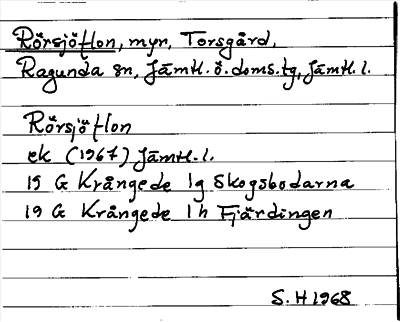 Rörsjöflon, myr, Torsgård,
Ragunda sn, Jämtl. ö. doms.tg, Jämtl. l.
Rörsjöflon
ek (1967) Jämtl. l.
19 G Krångede 1g Skogsbodarna
19 G Krångede 1h Fjärdingen
S. H 1968